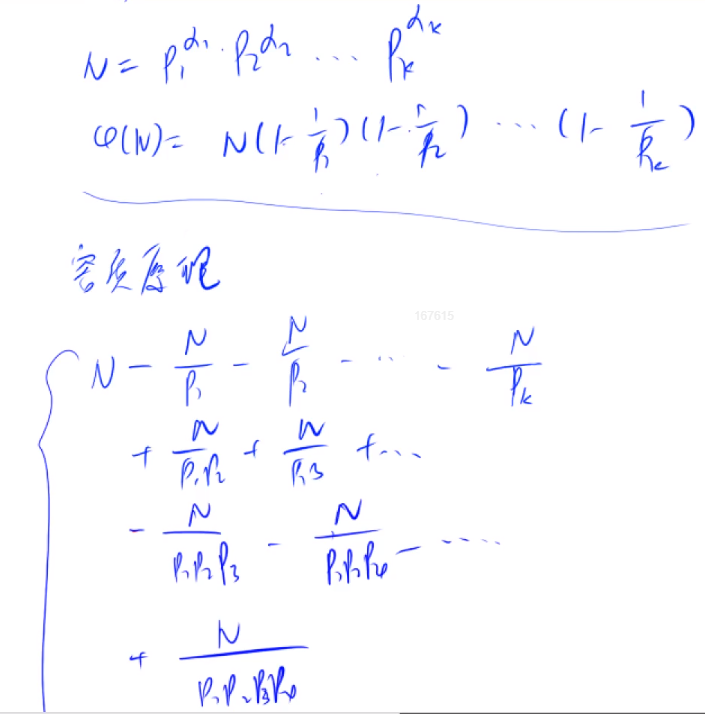 N = P₁^α₁ · P₂^α₂ ... Pₖ^αₖ
φ(N) = N(1-1/P₁)(1-1/P₂) ... (1-1/Pₖ)
容斥原理
167815
N - N/P₁ - N/P₂ - ... - N/Pₖ
+ N/P₁P₂ + N/P₁P₃ + ...
- N/P₁P₂P₃ - N/P₁P₂P₄ - ......
+ N/P₁P₂P₃P₄